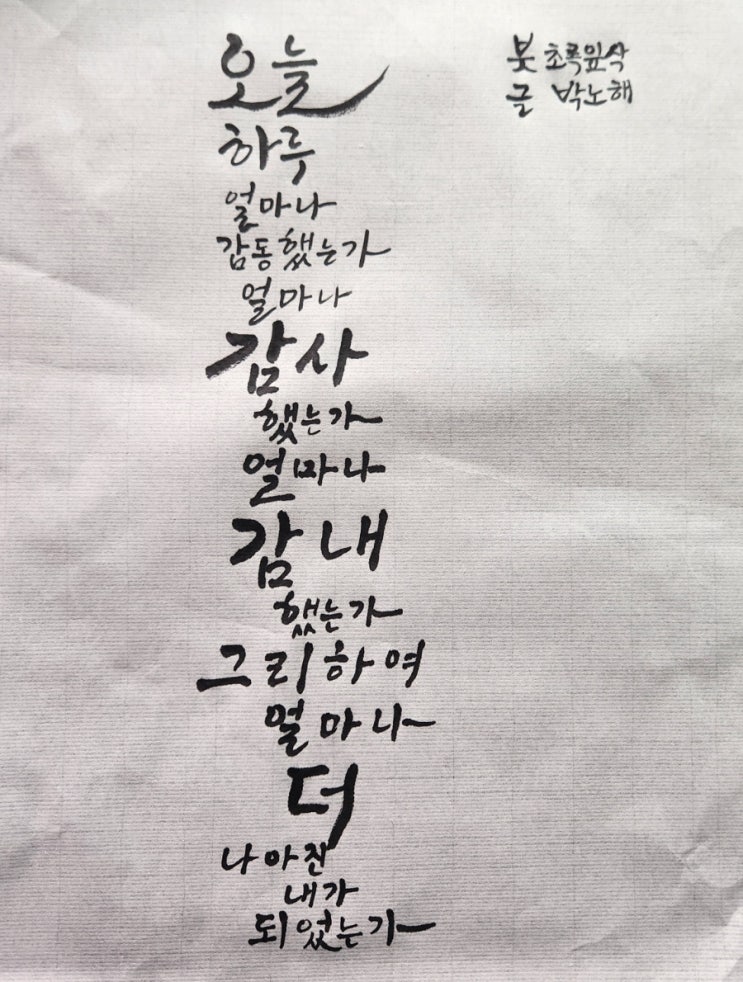 오늘
하루
얼마나
감동했는가
얼마나
감사
했는가
얼마나
감내
했는가
그리하여
얼마나
더
나아진
내가
되었는가
붓 초록잎싹
글 박노해